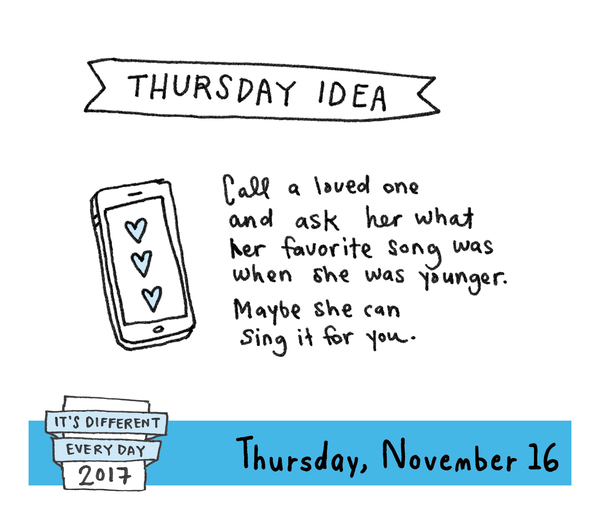 THURSDAY IDEA
Call a loved one
and ask her what
her favorite song was
when she was younger.
Maybe she can
sing it for you.
IT'S DIFFERENT
EVERY DAY
2017
Thursday, November 16